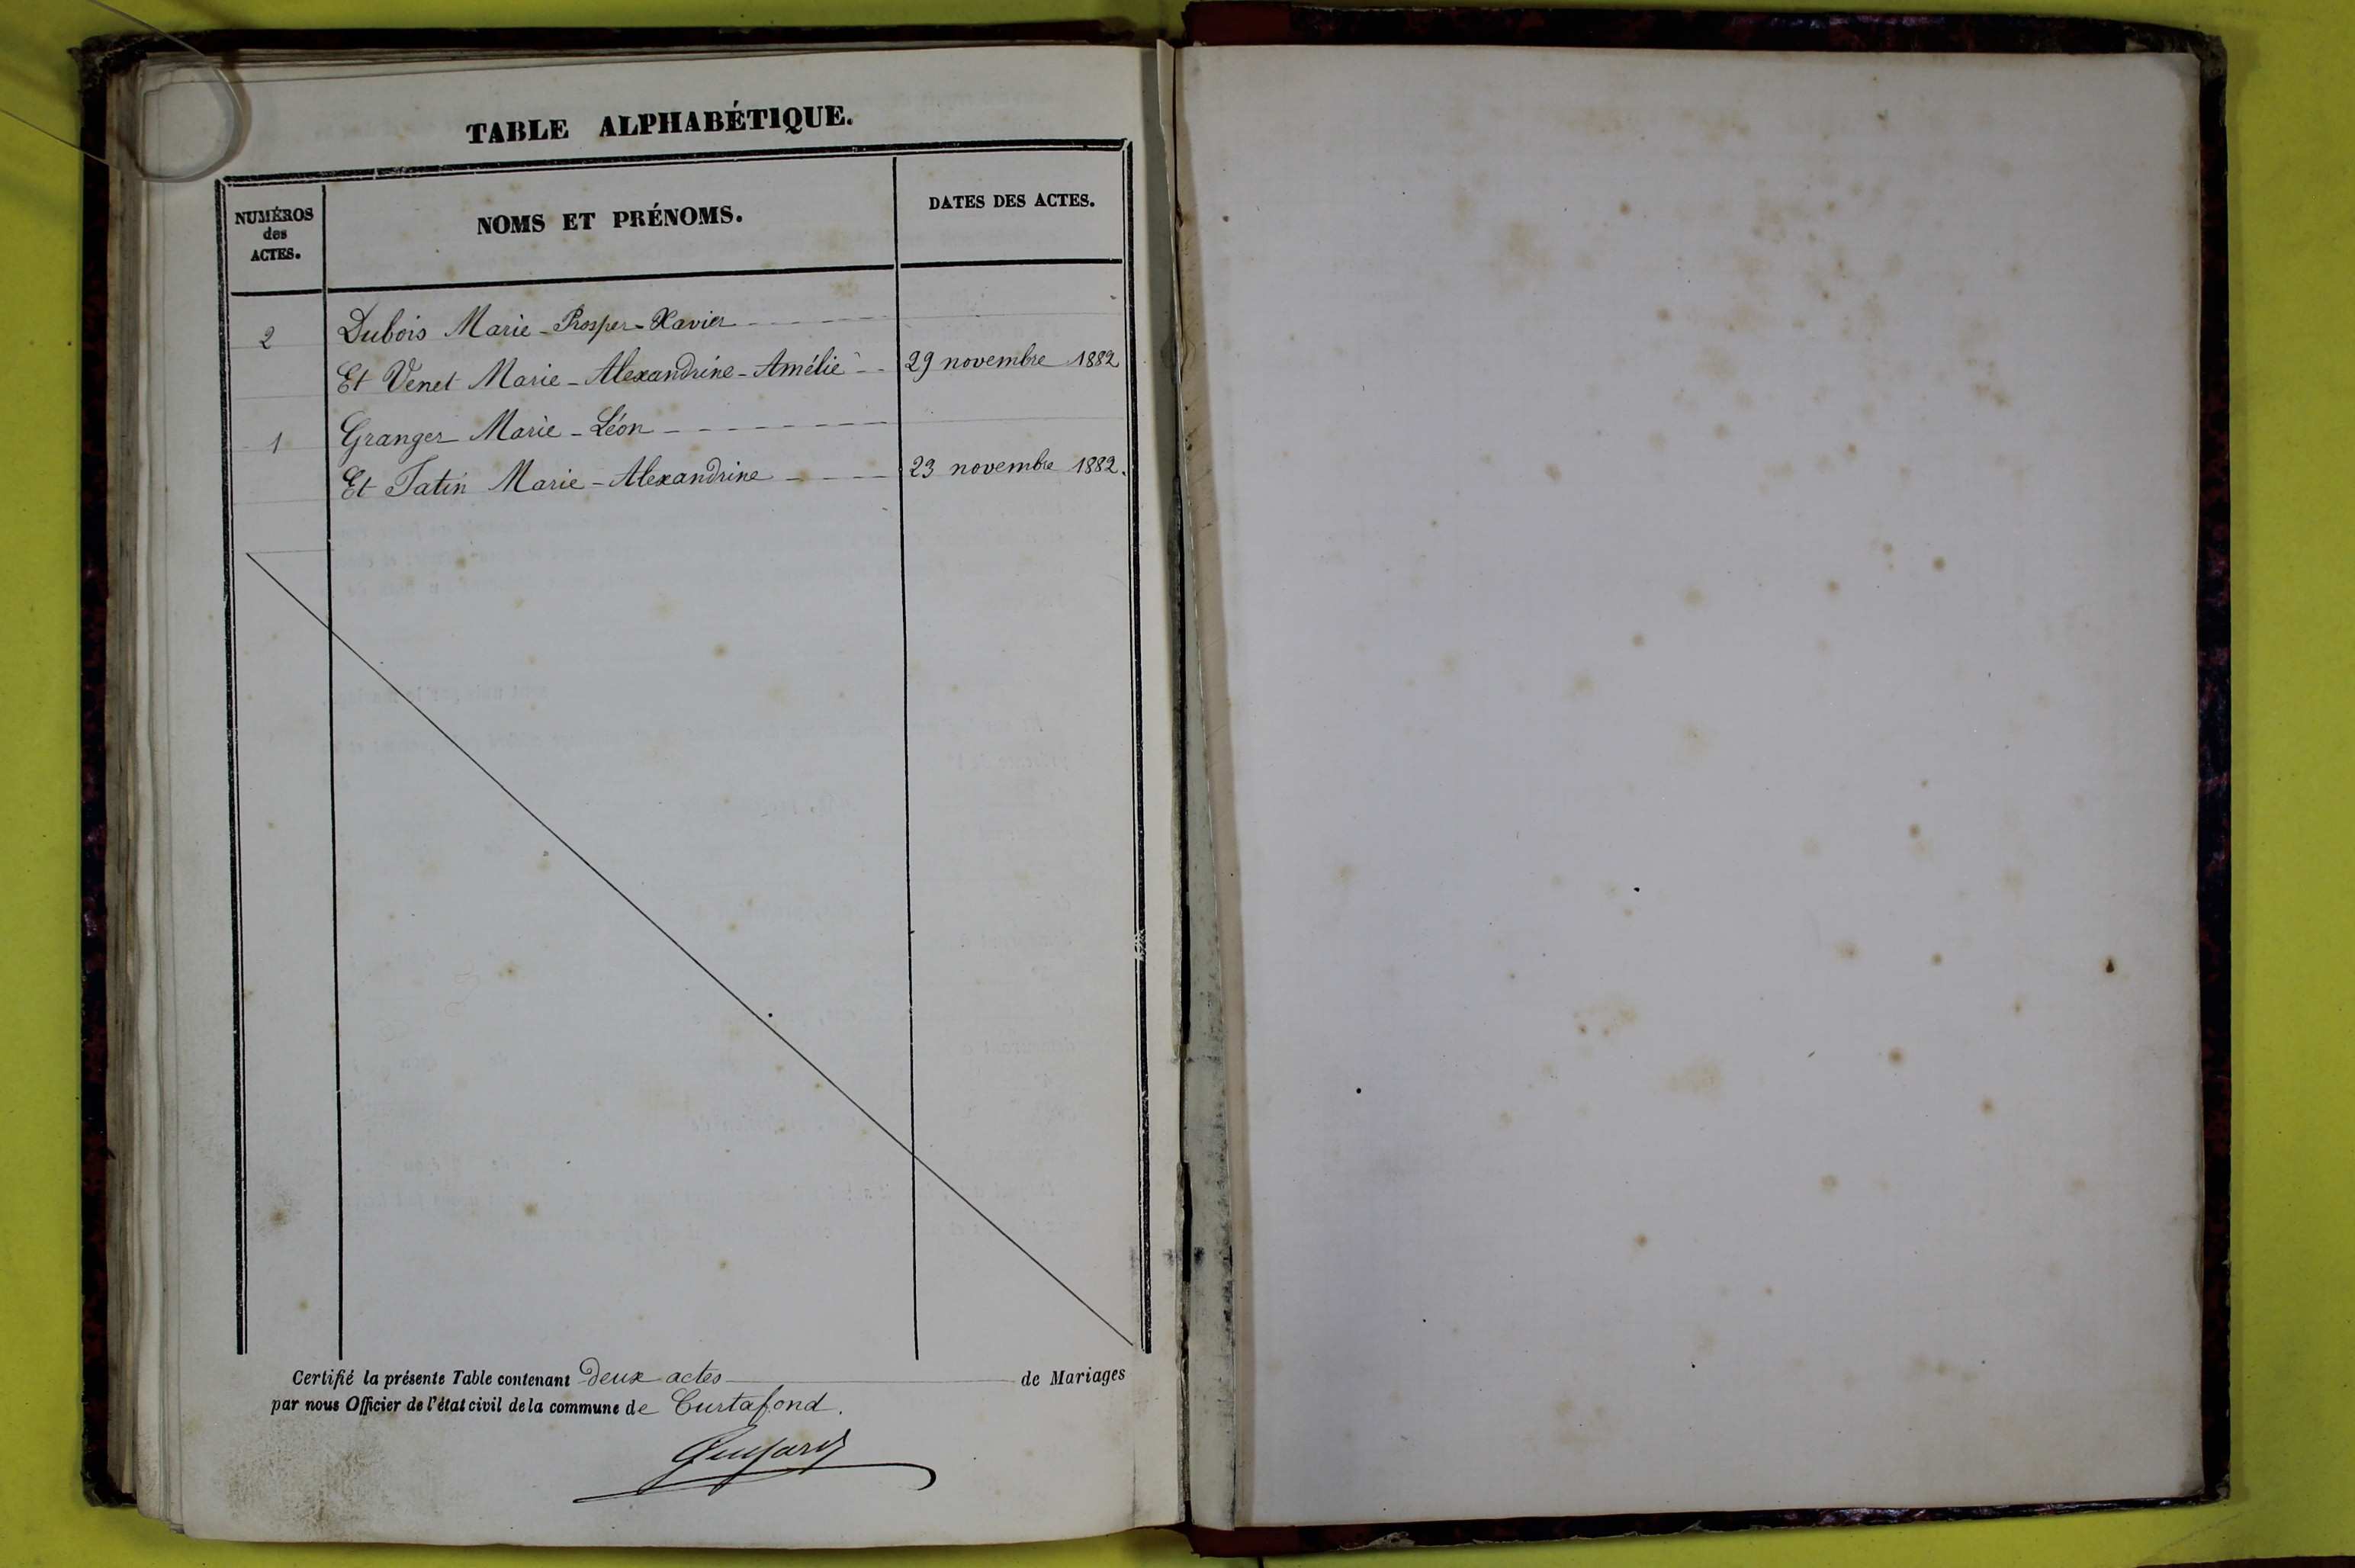 TABLE ALPHABÉTIQUE.
NUMÉROS
des
ACTES.
NOMS ET PRÉNOMS.
DATES DES ACTES.
2 Dubois Marie-Prosper-Xavier
Et Venet Marie-Alexandrine-Amélie 29 novembre 1882
1 Granger Marie-Léon
Et Tatin Marie-Alexandrine 23 novembre 1882.
Certifié la présente Table contenant deux actes de Mariages
par nous Officier de l'état civil de la commune de Curtafond.